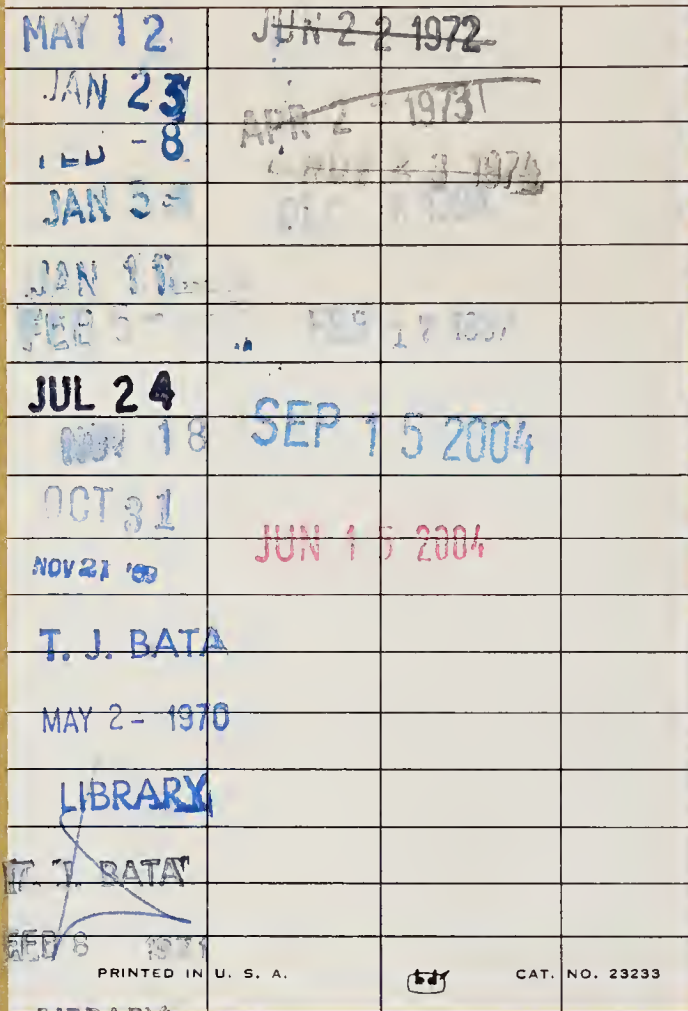 MAY 12
JAN 23
FEB - 8
JAN 5 -
JAN 11
FEB 5 -
JUL 24
NOV 18
OCT 31
NOV 21 '69
T. J. BATA
MAY 2 - 1970
LIBRARY
T. J. BATA
FEB 8 1971
LIBRARY
JUN 22 1972
APR 2 1973
1974
SEP 15 2004
JUN 15 2004
PRINTED IN U. S. A.
bd
CAT. NO. 23233